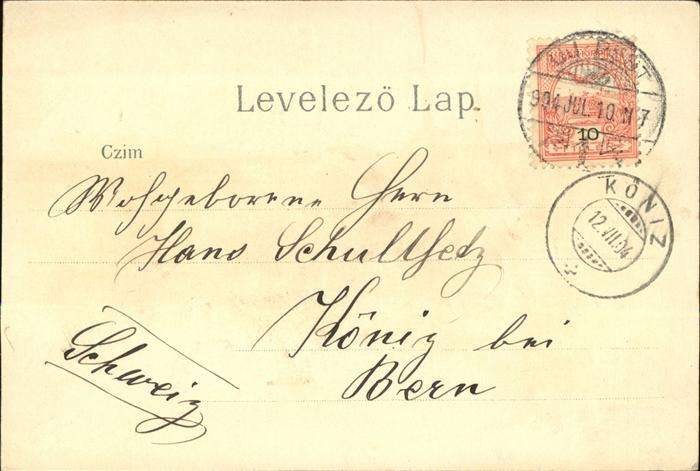 Levelező Lap
Czim
10
904 JUL. 10
KÖNIZ
12.VII.04
Wohlgeborenen Herrn
Hans Schulthess
Köniz bei
Bern
Schweiz